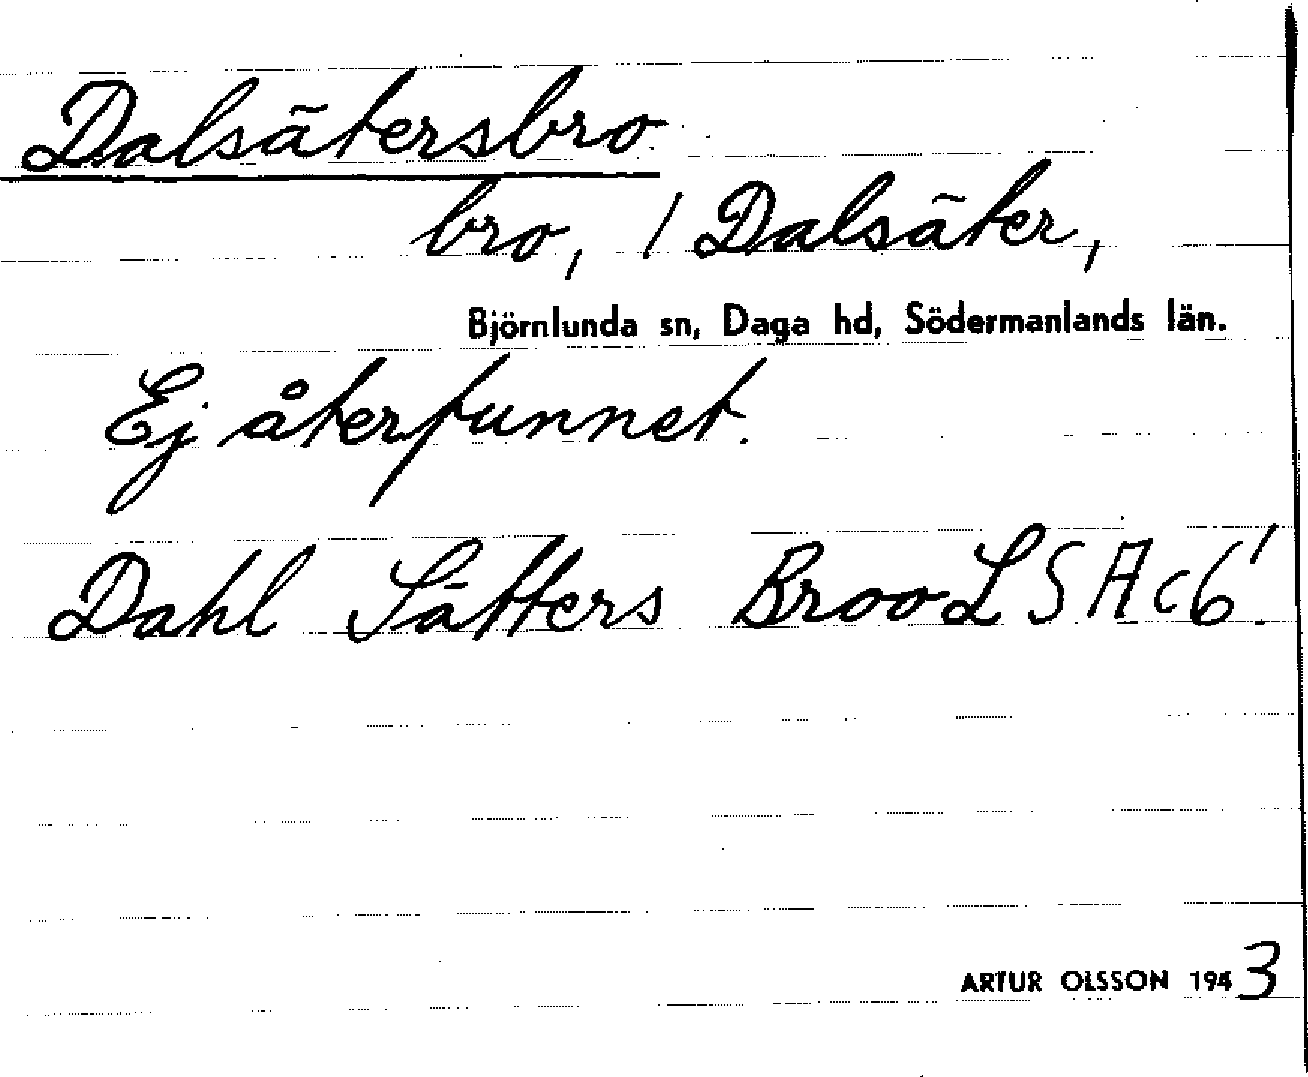 Dalsätersbro
bro, / Dalsäter,
Björnlunda sn, Daga hd, Södermanlands län.
Ej återfunnet.
Dahl Sätters Broo LSA c6!
ARTUR OLSSON 1943